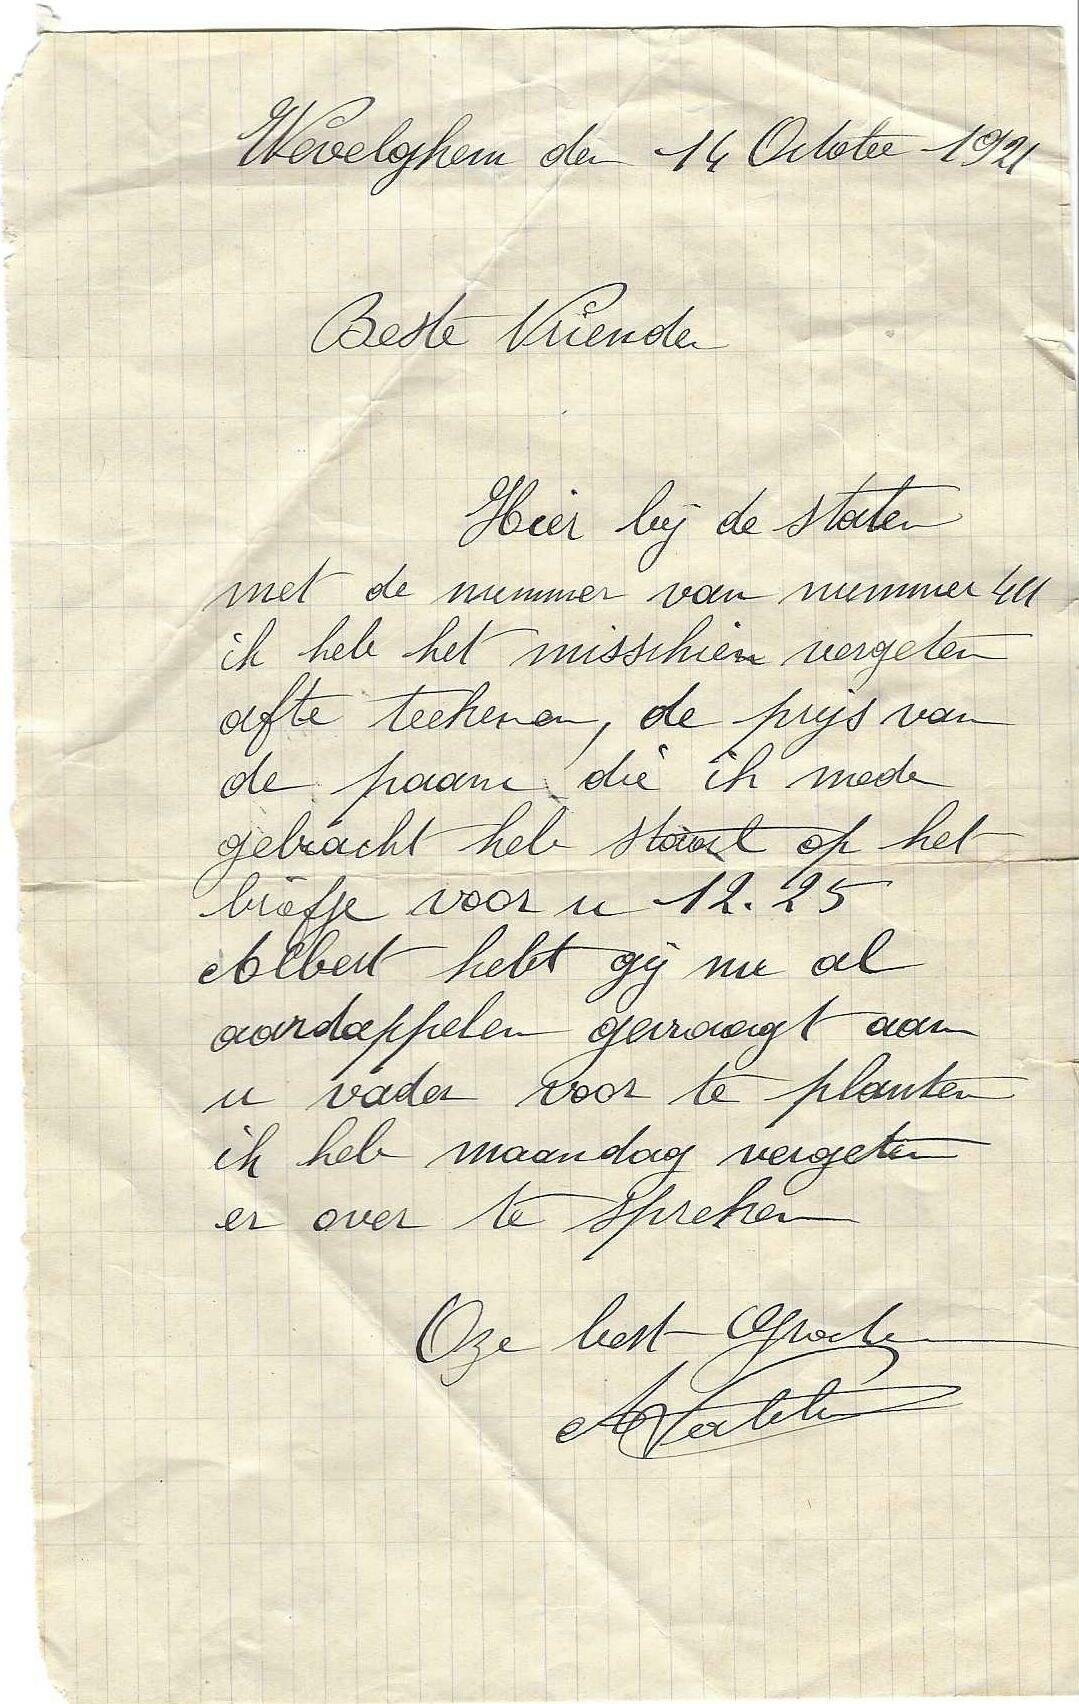 Wevelghem den 14 October 1921
Beste Vrienden
Hier bij de staten
met de nummer van nummer 411
ik heb het misschien vergeten
afte teekenen, de prijs van
de paane die ik mede
gebracht heb staat op het
briefje voor u 12.25
Albert hebt gij nu al
aardappelen gevraagt aan
u vader voor te planten
ik heb maandag vergeten
er over te spreken
Oze best Groeten